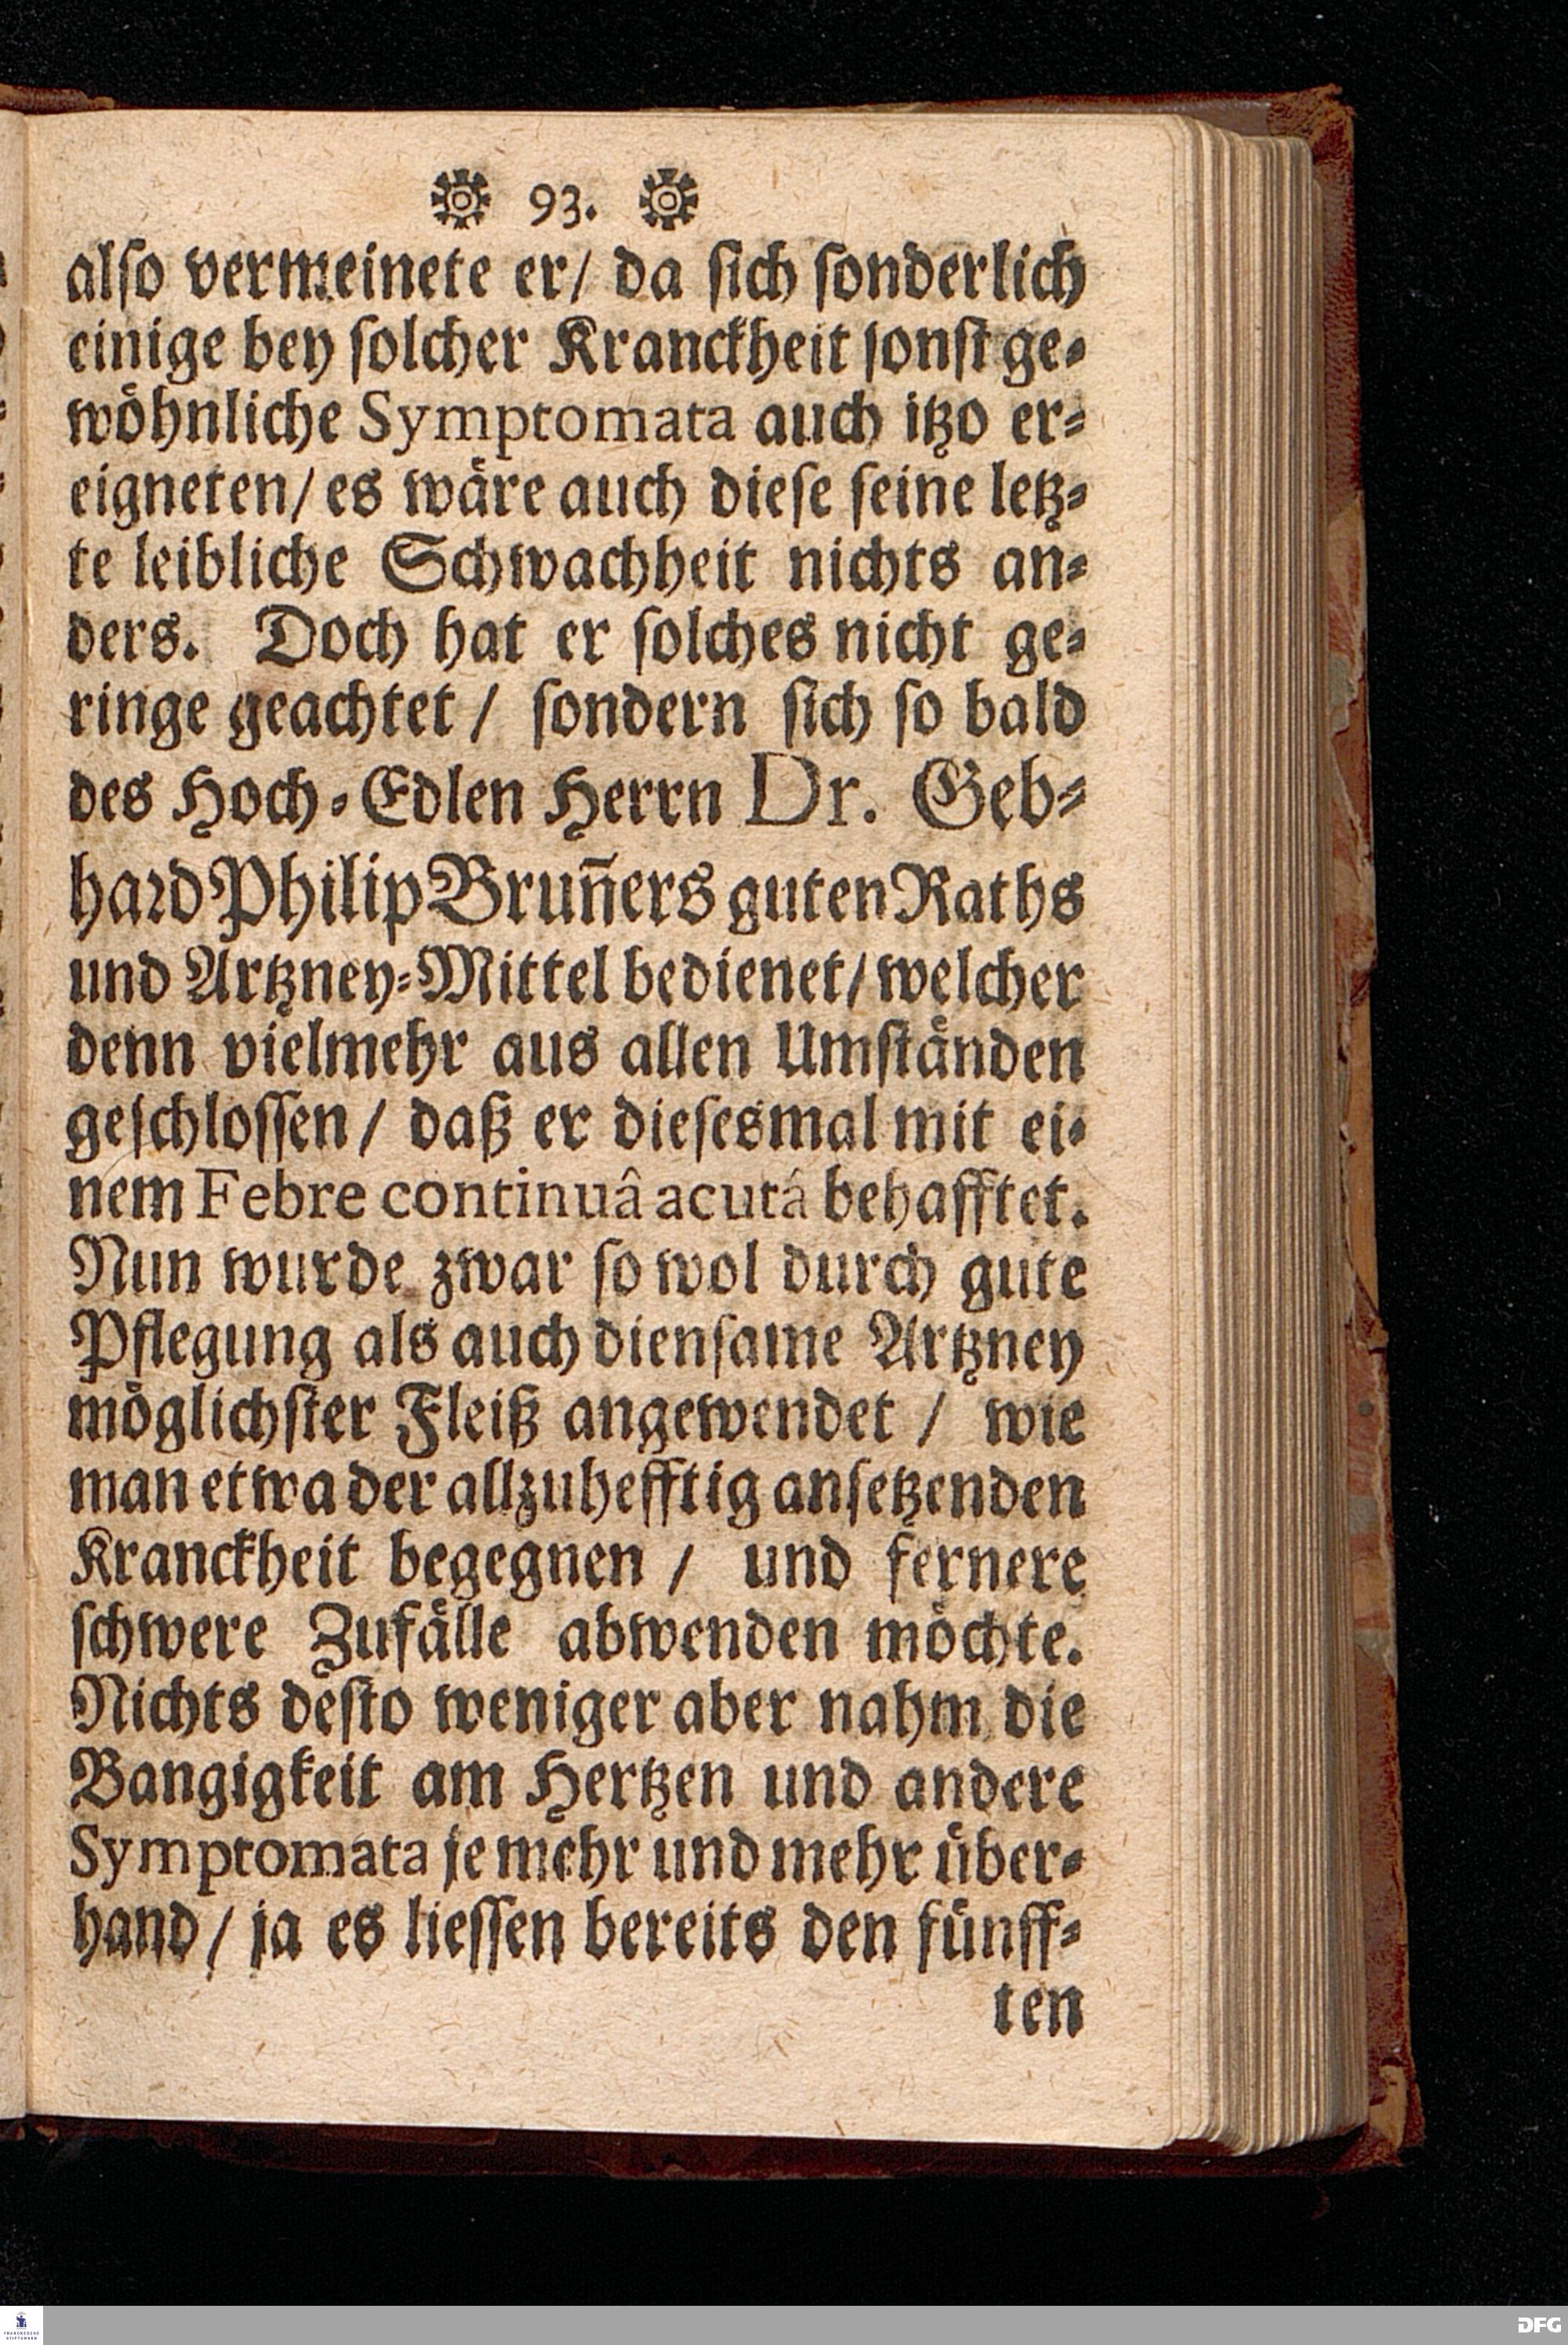 93.
also vermeinete er/ da sich sonderlich
einige bey solcher Kranckheit sonst ge-
wöhnliche Symptomata auch itzo er-
eigneten/ es wäre auch diese seine letz-
te leibliche Schwachheit nichts an-
ders. Doch hat er solches nicht ge-
ringe geachtet / sondern sich so bald
des Hoch-Edlen Herrn Dr. Geb-
hard Philip Brun̄ers guten Raths
und Artzney-Mittel bedienet/ welcher
denn vielmehr aus allen Umständen
geschlossen / daß er diesesmal mit ei-
nem Febre continuâ acutâ behafftet.
Nun wurde zwar so wol durch gute
Pflegung als auch diensame Artzney
möglichster Fleiß angewendet / wie
man etwa der allzuhefftig ansetzenden
Kranckheit begegnen / und fernere
schwere Zufälle abwenden möchte.
Nichts desto weniger aber nahm die
Bangigkeit am Hertzen und andere
Symptomata je mehr und mehr über-
hand / ja es liessen bereits den fünff-
ten
FRANCKESCHE STIFTUNGEN
DFG